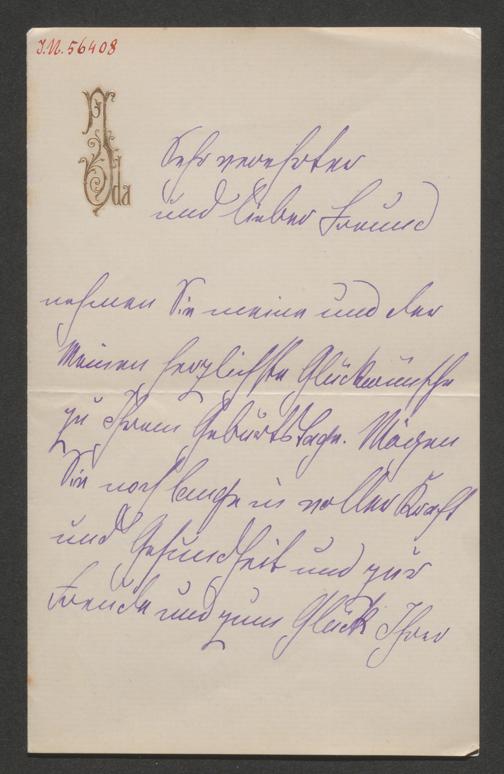 I.N. 56408
Ida
Sehr verehrter
und lieber Freund
nehmen Sie meine und der
Meinen herzlichste Glückwünsche
zu Ihrem Geburtstage. Mögen
Sie noch lange in voller Kraft
und Gesundheit und zur
Freude und zum Glück Ihrer